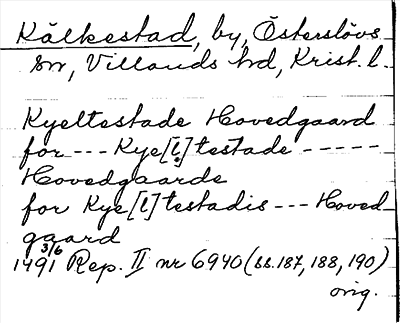 Kälkestad, by, Österslövs
sn, Villands hd, Krist. l.
Kyeltestade Hovedgaard
for --- Kye[l]testade -----
Hovedgaarde
for Kye[l]testadis --- Hoved-
gaard
1491 3/6 Rep. II nr 6940 (ss. 187, 188, 190)
orig.